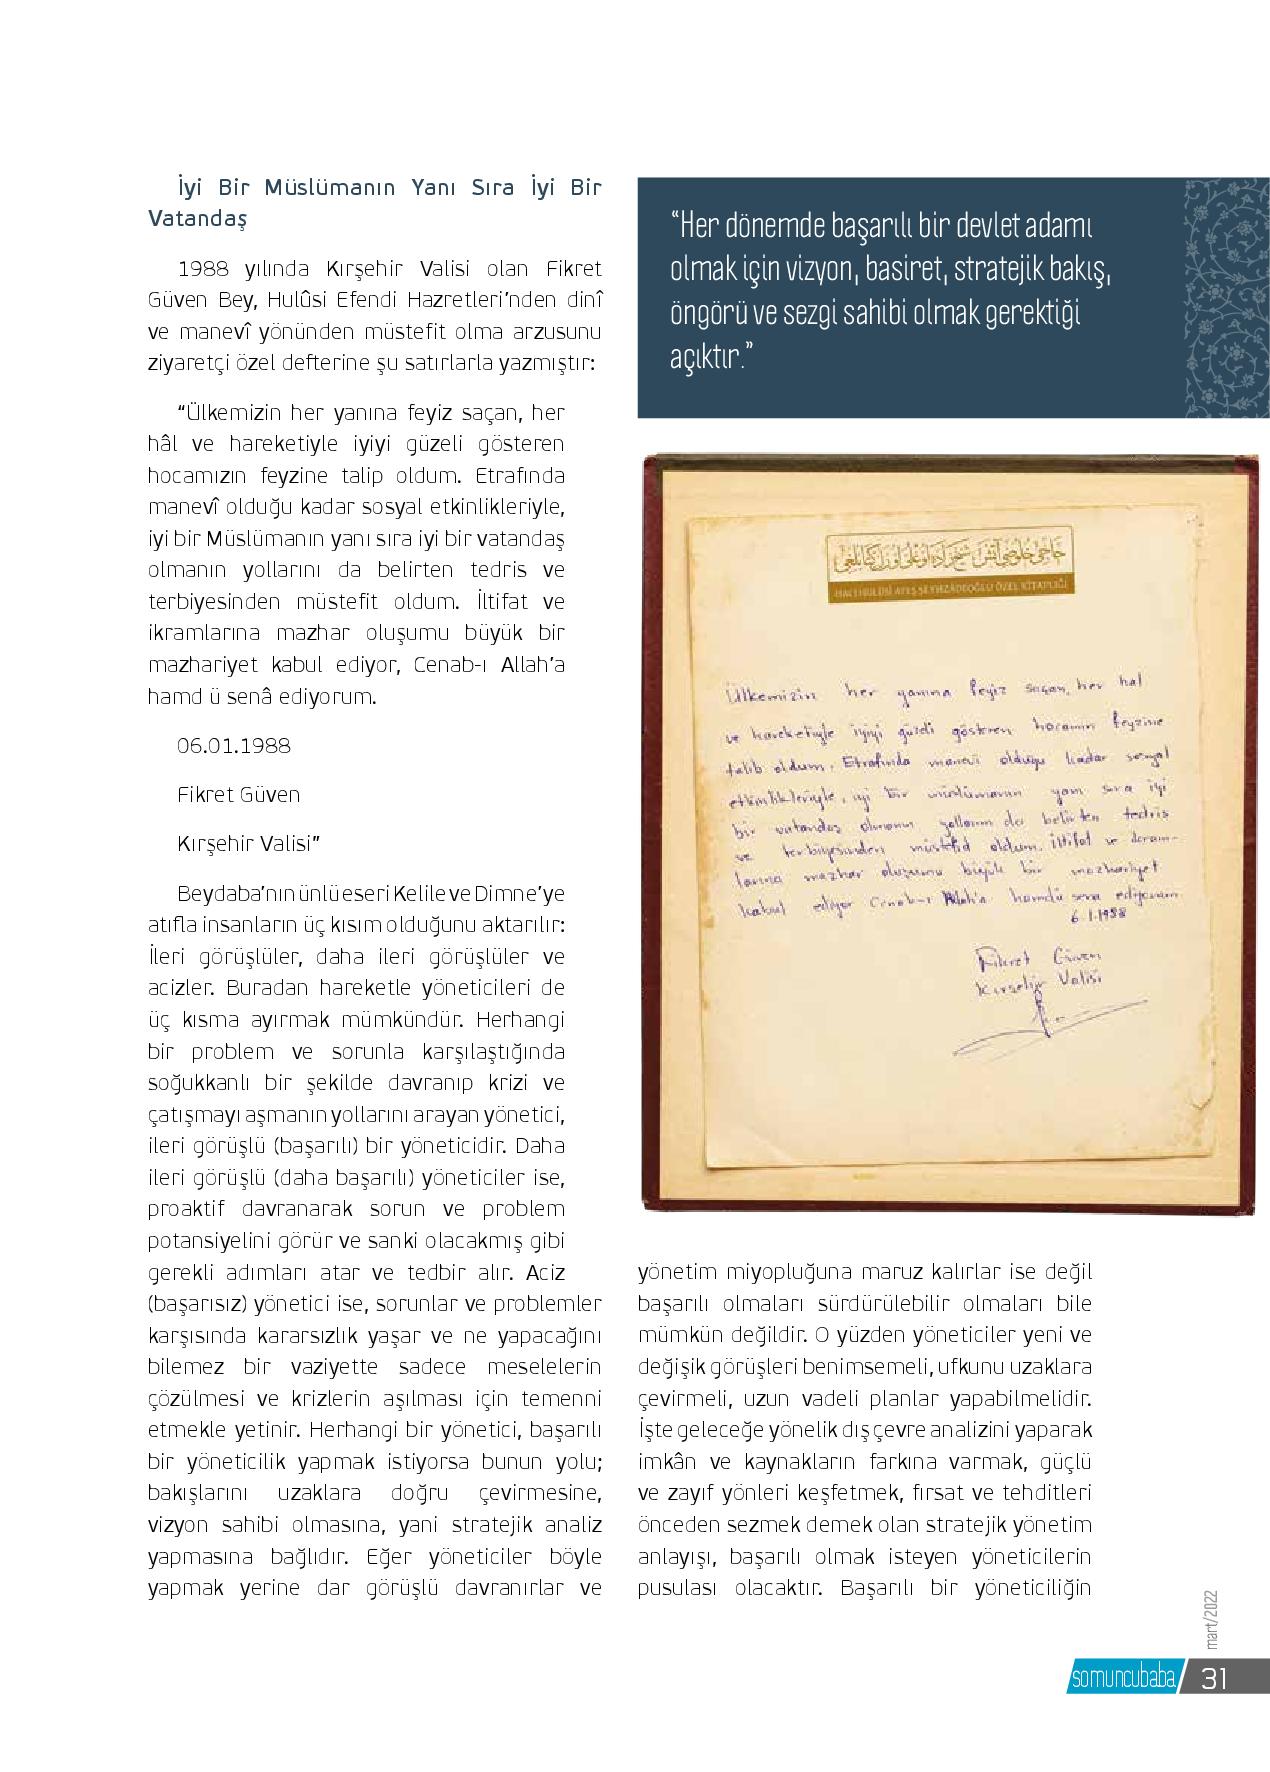 İyi Bir Müslümanın Yanı Sıra İyi Bir
Vatandaş
1988 yılında Kırşehir Valisi olan Fikret
Güven Bey, Hulûsi Efendi Hazretleri’nden dinî
ve manevî yönünden müstefit olma arzusunu
ziyaretçi özel defterine şu satırlarla yazmıştır:
“Ülkemizin her yanına feyiz saçan, her
hâl ve hareketiyle iyiyi güzeli gösteren
hocamızın feyzine talip oldum. Etrafında
manevî olduğu kadar sosyal etkinlikleriyle,
iyi bir Müslümanın yanı sıra iyi bir vatandaş
olmanın yollarını da belirten tedris ve
terbiyesinden müstefit oldum. İltifat ve
ikramlarına mazhar oluşumu büyük bir
mazhariyet kabul ediyor, Cenab-ı Allah’a
hamd ü senâ ediyorum.
06.01.1988
Fikret Güven
Kırşehir Valisi”
Beydaba’nın ünlü eseri Kelile ve Dimne’ye
atıfla insanların üç kısım olduğunu aktarılır:
İleri görüşlüler, daha ileri görüşlüler ve
acizler. Buradan hareketle yöneticileri de
üç kısma ayırmak mümkündür. Herhangi
bir problem ve sorunla karşılaştığında
soğukkanlı bir şekilde davranıp krizi ve
çatışmayı aşmanın yollarını arayan yönetici,
ileri görüşlü (başarılı) bir yöneticidir. Daha
ileri görüşlü (daha başarılı) yöneticiler ise,
proaktif davranarak sorun ve problem
potansiyelini görür ve sanki olacakmış gibi
gerekli adımları atar ve tedbir alır. Aciz
(başarısız) yönetici ise, sorunlar ve problemler
karşısında kararsızlık yaşar ve ne yapacağını
bilemez bir vaziyette sadece meselelerin
çözülmesi ve krizlerin aşılması için temenni
etmekle yetinir. Herhangi bir yönetici, başarılı
bir yöneticilik yapmak istiyorsa bunun yolu;
bakışlarını uzaklara doğru çevirmesine,
vizyon sahibi olmasına, yani stratejik analiz
yapmasına bağlıdır. Eğer yöneticiler böyle
yapmak yerine dar görüşlü davranırlar ve
“Her dönemde başarılı bir devlet adamı
olmak için vizyon, basiret, stratejik bakış,
öngörü ve sezgi sahibi olmak gerektiği
açıktır.”
HACI HULÛSİ ATEŞ ŞEYHZÂDEOĞLU ÖZEL KİTAPLIĞI
Ülkemizin her yanına feyiz saçan, her hal
ve hareketiyle iyiyi güzeli gösteren hocamın feyzine
talib oldum. Etrafında manevi olduğu kadar sosyal
etkinlikleriyle, iyi bir müslümanın yanı sıra iyi
bir vatandaş olmanın yollarını da belirten tedris
ve terbiyesinden müstefid oldum. İltifat ve
larına mazhar oluşumu büyük bir mazhariyet
kabul ediyor Cenab-ı Allah'a hamdü sena ediyorum
6.1.1988
Fikret Güven
Kırşehir Valisi
yönetim miyopluğuna maruz kalırlar ise değil
başarılı olmaları sürdürülebilir olmaları bile
mümkün değildir. O yüzden yöneticiler yeni ve
değişik görüşleri benimsemeli, ufkunu uzaklara
çevirmeli, uzun vadeli planlar yapabilmelidir.
İşte geleceğe yönelik dış çevre analizini yaparak
imkân ve kaynakların farkına varmak, güçlü
ve zayıf yönleri keşfetmek, fırsat ve tehditleri
önceden sezmek demek olan stratejik yönetim
anlayışı, başarılı olmak isteyen yöneticilerin
pusulası olacaktır. Başarılı bir yöneticiliğin
mart/2022
somuncubaba 31